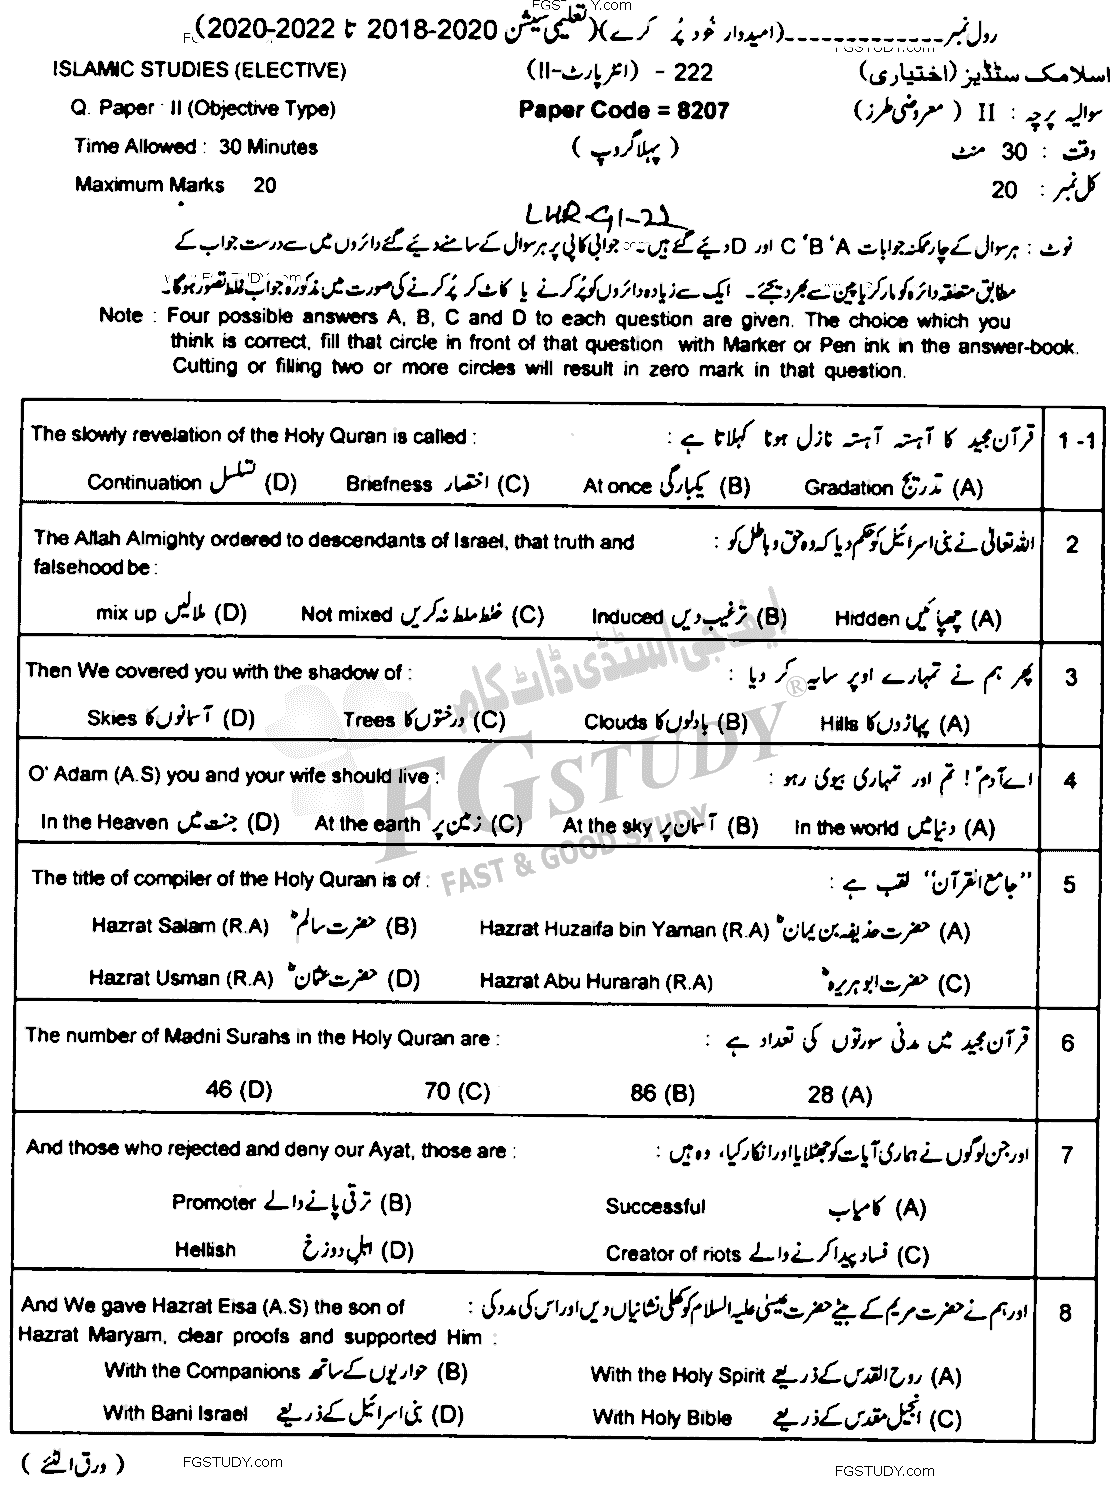 FGSTUDY.com
رول نمبر ـــــــــــــــ (امیدوار خود پُر کرے) (تعلیمی سیشن 2018-2020 تا 2020-2022)
FGSTUDY.com
ISLAMIC STUDIES (ELECTIVE) 222 - (انٹر پارٹ-II) اسلامک سٹڈیز (اختیاری)
Q. Paper : II (Objective Type) Paper Code = 8207 سوالیہ پرچہ : II (معروضی طرز)
Time Allowed : 30 Minutes (پہلا گروپ) وقت : 30 منٹ
Maximum Marks 20 کل نمبر : 20
LHR-G1-22
نوٹ : ہر سوال کے چار ممکنہ جوابات A ‘B ‘C اور D دیئے گئے ہیں۔ جوابی کاپی پر ہر سوال کے سامنے دیئے گئے دائروں میں سے درست جواب کے
مطابق متعلقہ دائرہ کو مارکر یا پین سے بھر دیجئے۔ ایک سے زیادہ دائروں کو پُر کرنے یا کاٹ کر پُر کرنے کی صورت میں مذکورہ جواب غلط تصور ہوگا۔
Note : Four possible answers A, B, C and D to each question are given. The choice which you
think is correct, fill that circle in front of that question with Marker or Pen ink in the answer-book.
Cutting or filling two or more circles will result in zero mark in that question.
The slowly revelation of the Holy Quran is called : قرآن مجید کا آہستہ آہستہ نازل ہونا کہلاتا ہے : 1 -1
Continuation تسلسل (D) Briefness اختصار (C) At once یکبارگی (B) Gradation تدریج (A)
The Allah Almighty ordered to descendants of Israel, that truth and اللہ تعالیٰ نے بنی اسرائیل کو حکم دیا کہ وہ حق و باطل کو : 2
falsehood be :
mix up ملالیں (D) Not mixed خلط ملط نہ کریں (C) Induced ترغیب دیں (B) Hidden چھپائیں (A)
Then We covered you with the shadow of : پھر ہم نے تمہارے اوپر سایہ کر دیا : 3
Skies آسمانوں کا (D) Trees درختوں کا (C) Clouds بادلوں کا (B) Hills پہاڑوں کا (A)
O' Adam (A.S) you and your wife should live : اے آدم ؑ! تم اور تمہاری بیوی رہو : 4
In the Heaven جنت میں (D) At the earth زمین پر (C) At the sky آسمان پر (B) In the world دنیا میں (A)
The title of compiler of the Holy Quran is of : "جامع القرآن" لقب ہے : 5
Hazrat Salam (R.A) حضرت سالم ؓ (B) Hazrat Huzaifa bin Yaman (R.A) حضرت حذیفہ بن یمان ؓ (A)
Hazrat Usman (R.A) حضرت عثمان ؓ (D) Hazrat Abu Hurarah (R.A) حضرت ابو ہریرہ ؓ (C)
The number of Madni Surahs in the Holy Quran are : قرآن مجید میں مدنی سورتوں کی تعداد ہے : 6
46 (D) 70 (C) 86 (B) 28 (A)
And those who rejected and deny our Ayat, those are : اور جن لوگوں نے ہماری آیات کو جھٹلایا اور انکار کیا، وہ ہیں : 7
Promoter ترقی پانے والے (B) Successful کامیاب (A)
Hellish اہل دوزخ (D) Creator of riots فساد پیدا کرنے والے (C)
And We gave Hazrat Eisa (A.S) the son of اور ہم نے حضرت مریم کے بیٹے حضرت عیسیٰ علیہ السلام کو کھلی نشانیاں دیں اور اس کی مدد کی : 8
Hazrat Maryam, clear proofs and supported Him :
With the Companions حواریوں کے ساتھ (B) With the Holy Spirit روح القدس کے ذریعے (A)
With Bani Israel بنی اسرائیل کے ذریعے (D) With Holy Bible انجیل مقدس کے ذریعے (C)
(ورق الٹئے) FGSTUDY.com FGSTUDY.com
ایف جی اسٹڈی ڈاٹ کام
FGSTUDY ®
FAST & GOOD STUDY